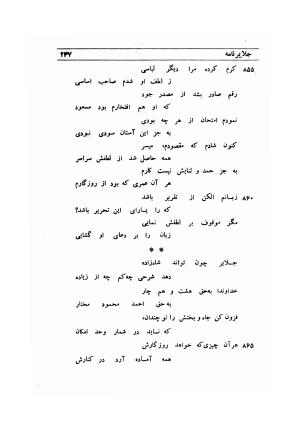 جلایرنامه ۲۴۷
۸۵۵ کرم کرده مرا دیگر لباسی
ز لطف او شدم صاحب اساسی
رقم صادر بشد از مصدر جود
که او هم افتخارم بود مسعود
نمودم امتحان از هر چه بودی
به جز این آستان سودی نبودی
کنون شادم که مقصودم، میسر
همه حاصل شد از لطفش سراسر
به جز حمد و ثنایش نیست کارم
هر آن عمری که بود از روزگارم
۸۶۰ زبانم الکن از تقریر باشد
که را یارای این تحریر باشد؟
مگر موقوف بر لطفش نمایی
زبان را بر دعای او گشایی
* *
جلایر چون تواند شاهزاده
دهد شرحی چه‌کم چه از زیاده
خداوندا به‌حق هشت و هم چار
به‌حق احمد محمود مختار
فزون کن جاه و بختش را تو چندان،
که ناید در شمار وحد امکان
۸۶۵ هرآن چیزی‌که خواهد روزگارش
همه آماده آرد در کنارش